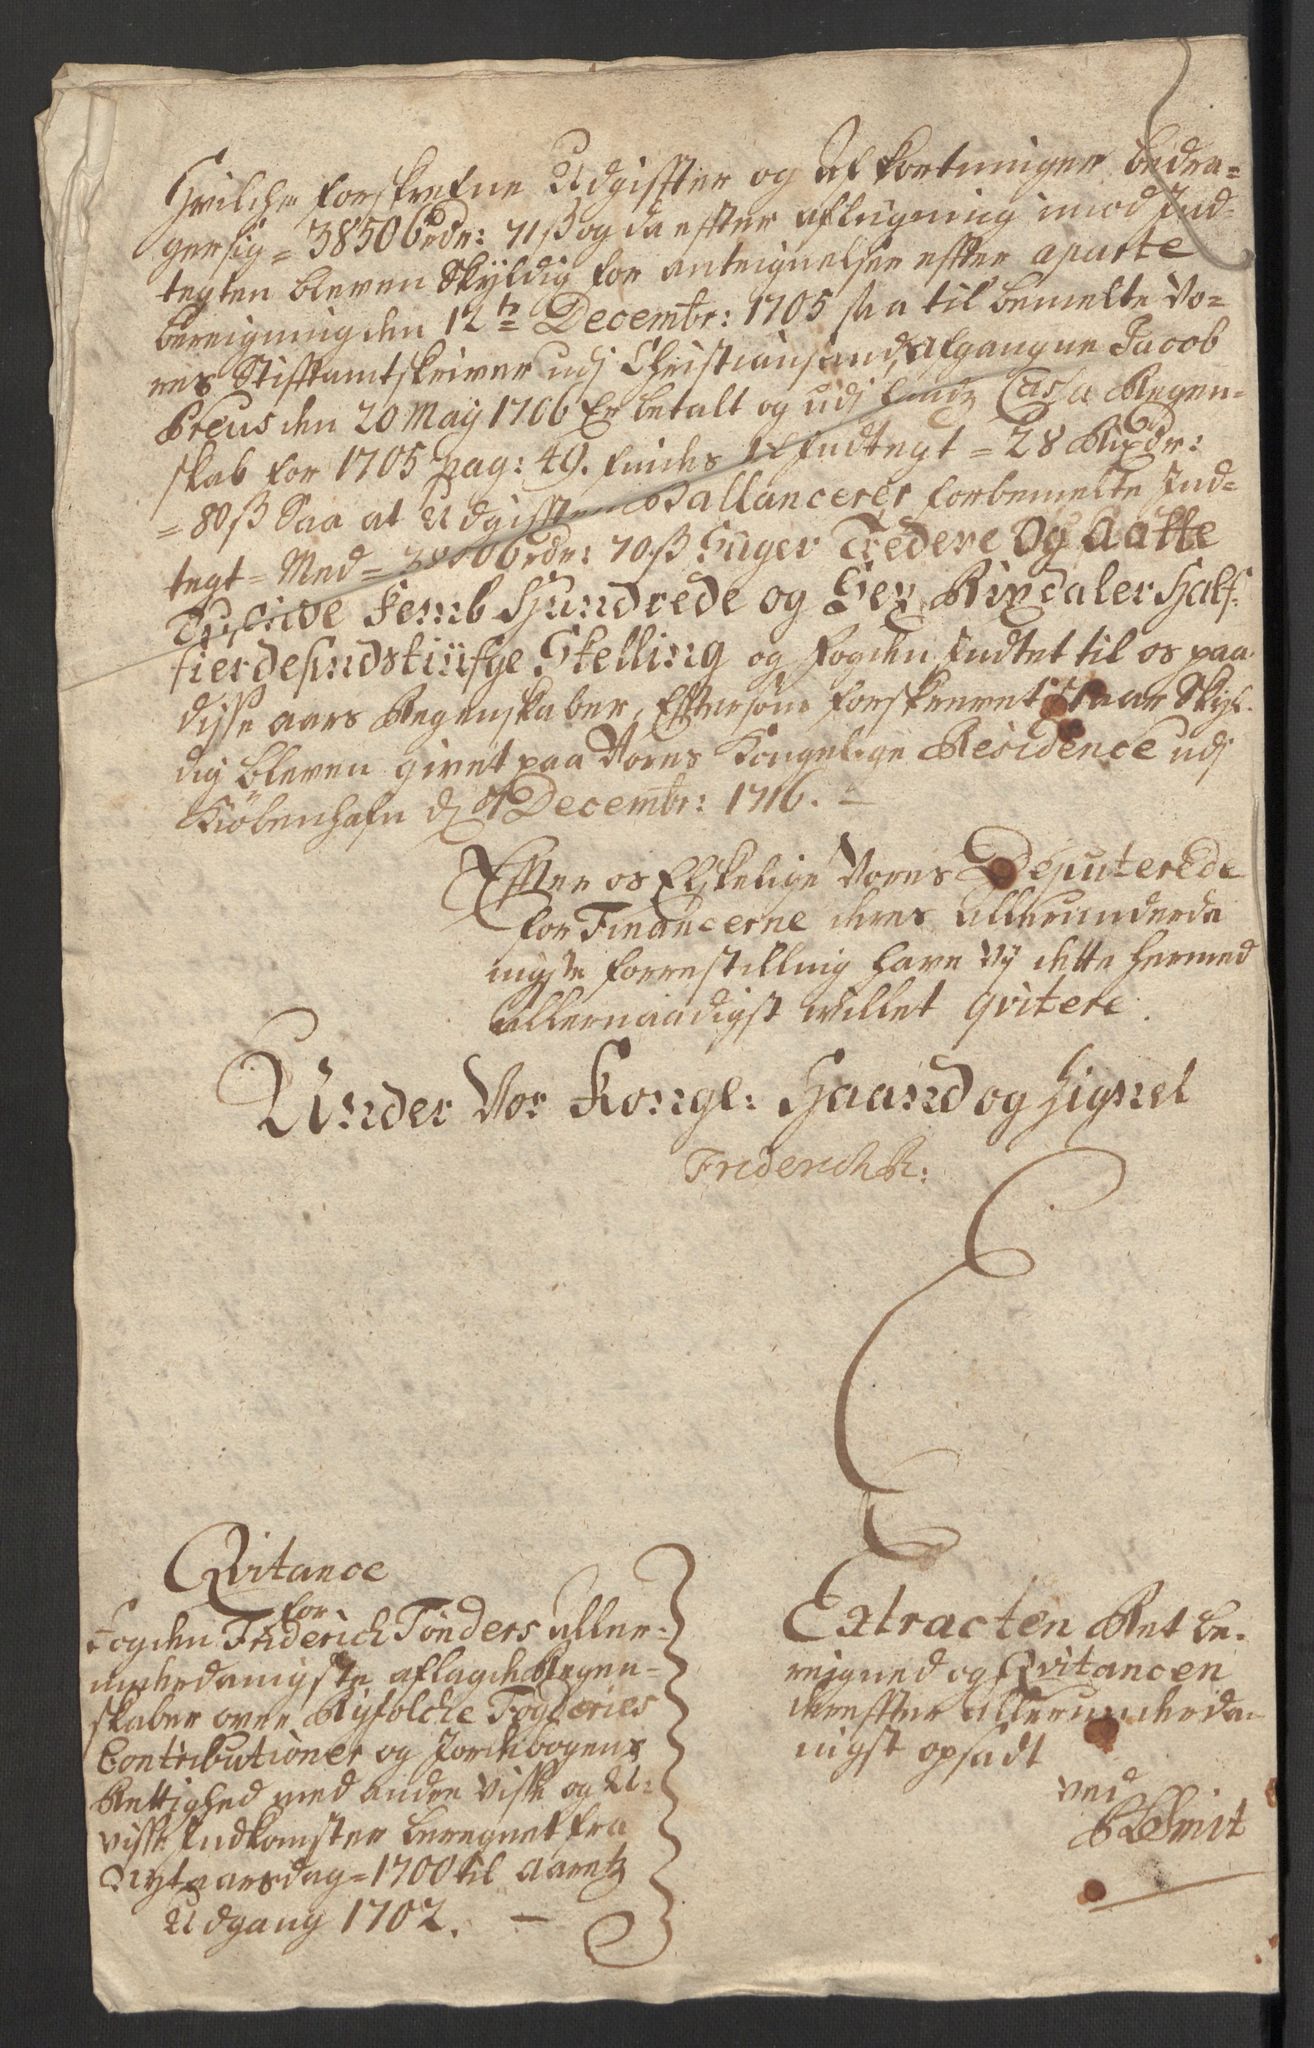 Hvilche forskrefne Udgiffter og Afkortninger bedra=
ger sig = 38506 rdr: 71 ß og da effter afligning imod Ind=
tegten bleven Skyldig for anteignelser effter aparte
bereigning den 12te Decembr: 1705 saa til bemelte Vo=
res Stifftamtskriver udj Christiansand, Afgangne Jacob
Preus den 20 May 1706 Er betalt og udj Cassa Regen=
skab for 1705 pag: 49. findes til Indtegt = 28 Rixdr:
= 80 ß Saa at Udgifften Ballancerer forbemelte Ind=
tegt = Med = 38506 rdr: 70 ß Siger Tredeve Og Aatte
Tusinde Femb Hundrede og Sex Rixdaler Half=
fierdesindstiufge Skelling og Fogden Indtet til os paa
disse aars Regenskaber, Eftersom forskrevet staar Skyl=
dig bleven givet paa Vores Kongelige Residence udj
Kiöbenhafn d Decembr: 1716.
Effter os Elskelige Vores Deputerede
for Financerne deres allerunderda
nigste forrestilling have Vj dette hermed
allernaadigst willet qvitere.
Under Vor Kongl: Haand og Signet
Friderich R:
Qvitance
for
Fogden Friderich Tönders aller=
underdanigste aflagde Regen=
skaber over Ryfölche Fogderies
Contributioner og Jordebogens
Rettighed med andre Visse og U=
visse Indkomster beregnet fra
Nytaarsdag = 1700 til Aaretz
Udgang 1702.
Extracten Ret be=
reigned og Qvitancen
dereffter allerunderda=
nigst opsadt
ved
Smit